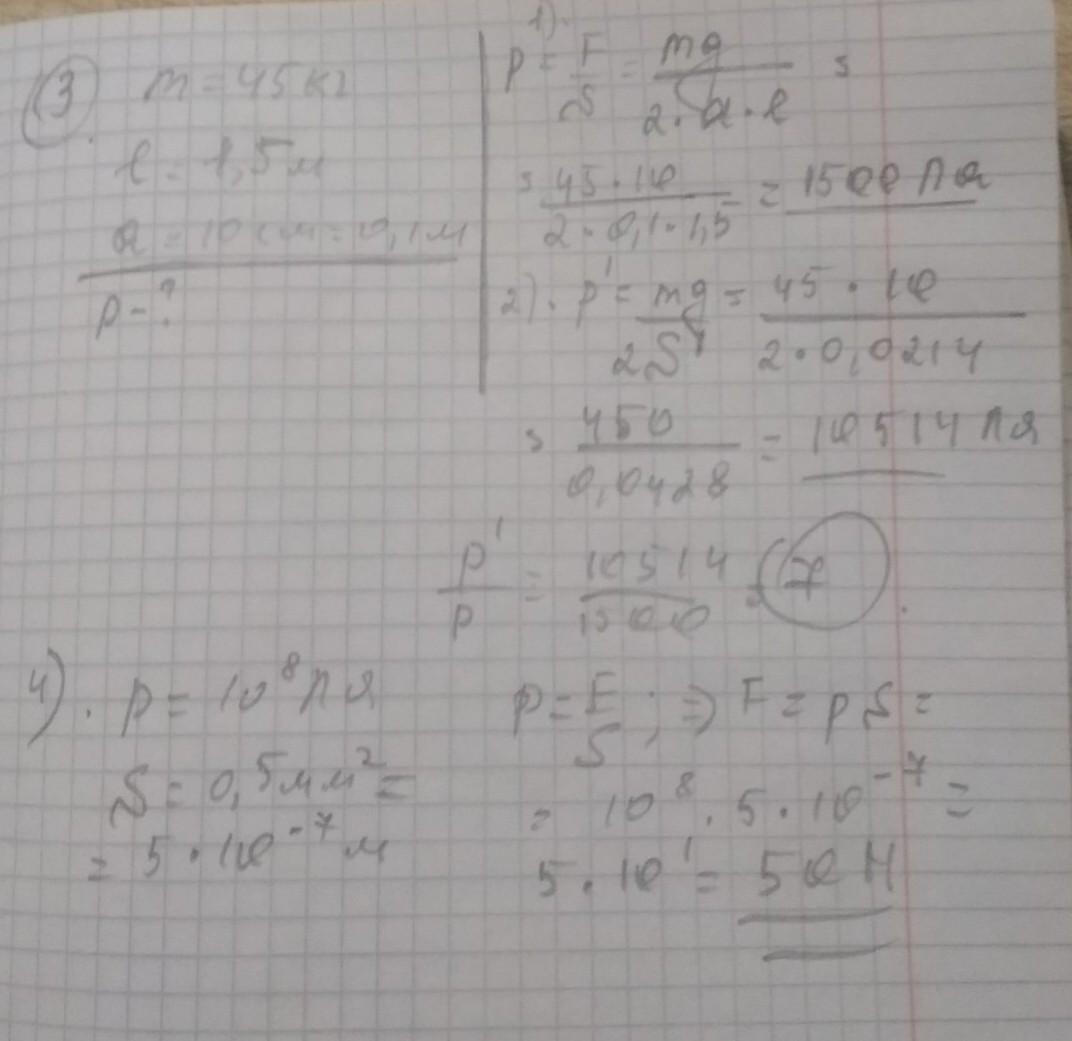 3. m = 45 кг
l = 1,5 м
a = 10 см = 0,1 м
p - ?
1). p = F/S = mg/(2·a·l) =
= 45·10/(2·0,1·1,5) = 1500 Па
2). p' = mg/2S' = 45·10/(2·0,0214)
= 450/0,0428 = 10514 Па
p'/p = 10514/1500 = 7.
4). p = 10⁸ Па
S = 0,5 мм² =
= 5·10⁻⁷ м
p = F/S; ⇒ F = pS =
= 10⁸·5·10⁻⁷ =
5·10¹ = 50 Н